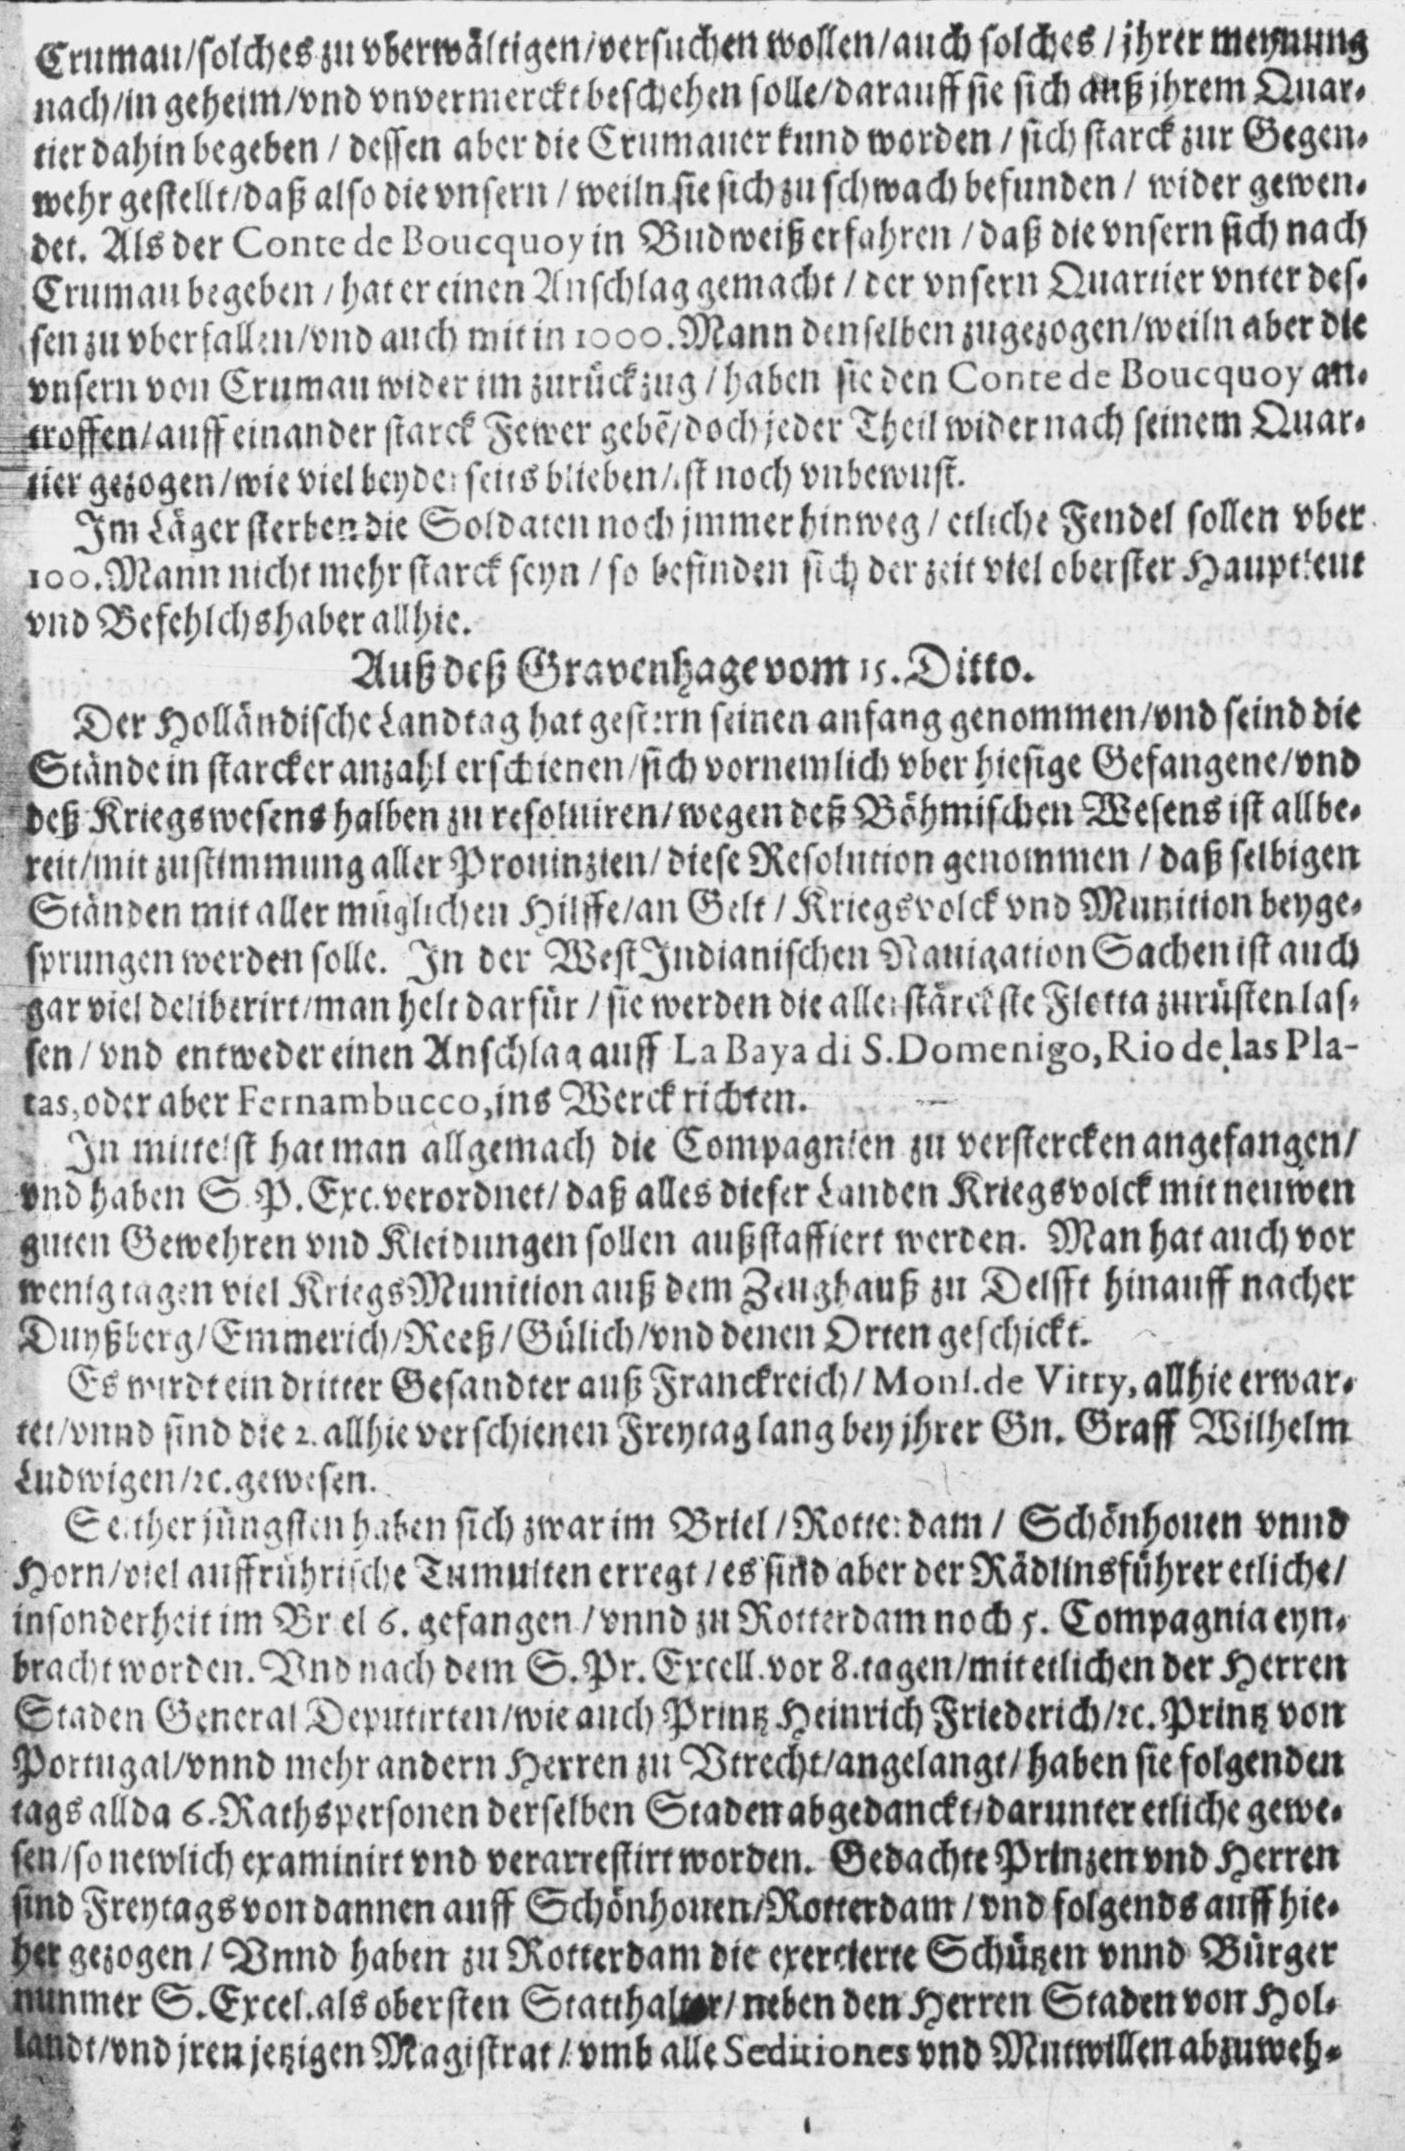 Crumau/solches zu vberwältigen/versuchen wollen/auch solches/jhrer meynung
nach/in geheim/vnd vnvermerckt beschehen solle/darauff sie sich auß jhrem Quar-
tier dahin begeben/dessen aber die Crumauer kund worden/sich starck zur Gegen-
wehr gestellt/daß also die vnsern/weiln sie sich zu schwach befunden/wider gewen-
det. Als der Conte de Boucquoy in Budweiß erfahren/daß die vnsern sich nach
Crumau begeben/hat er einen Anschlag gemacht/der vnsern Quartier vnter des-
sen zu vberfallen/vnd auch mit in 1000. Mann denselben zugezogen/weiln aber die
vnsern von Crumau wider im zurückzug/haben sie den Conte de Boucquoy an-
troffen/auff einander starck Fewer gebē/doch jeder Theil wider nach seinem Quar-
tier gezogen/wie viel beyderseits blieben/ist noch vnbewust.
Im Läger sterben die Soldaten noch jmmer hinweg/etliche Fendel sollen vber
100. Mann nicht mehr starck seyn/so befinden sich der zeit viel oberster Hauptleut
vnd Befehlchshaber allhie.
Auß deß Gravenhage vom 15. Ditto.
Der Holländische Landtag hat gestern seinen anfang genommen/vnd seind die
Stände in starcker anzahl erschienen/sich vornemlich vber hiesige Gefangene/vnd
deß Kriegswesens halben zu resoluiren/wegen deß Böhmischen Wesens ist allbe-
reit/mit zustimmung aller Prouinzien/diese Resolution genommen/daß selbigen
Ständen mit aller müglichen Hilffe/an Gelt/Kriegsvolck vnd Munition beyge-
sprungen werden solle. In der West Indianischen Nauigation Sachen ist auch
gar viel deliberirt/man helt darfür/sie werden die allerstärckste Flotta zurüsten las-
sen/vnd entweder einen Anschlag auff La Baya di S. Domenigo, Rio de las Pla-
tas, oder aber Fernambucco, ins Werck richten.
In mittelst hat man allgemach die Compagnien zu verstercken angefangen/
vnd haben S. P. Exc. verordnet/daß alles dieser Landen Kriegsvolck mit neuwen
guten Gewehren vnd Kleidungen sollen außstaffiert werden. Man hat auch vor
wenig tagen viel KriegsMunition auß dem Zeughauß zu Delfft hinauff nacher
Duyßberg/Emmerich/Reeß/Gülich/vnd denen Orten geschickt.
Es wirdt ein dritter Gesandter auß Franckreich/Mons. de Vitry, allhie erwar-
tet/vnnd sind die 2. allhie verschienen Freytag lang bey jhrer Gn. Graff Wilhelm
Ludwigen/ꝛc. gewesen.
Seither jüngsten haben sich zwar im Briel/Rotterdam/Schönhouen vnnd
Horn/viel auffrührische Tumulten erregt/es sind aber der Rädlinsführer etliche/
insonderheit im Briel 6. gefangen/vnnd zu Rotterdam noch 5. Compagnia eyn-
bracht worden. Vnd nach dem S. Pr. Excell. vor 8. tagen/mit etlichen der Herren
Staden General Deputirten/wie auch Printz Heinrich Friederich/ꝛc. Printz von
Portugal/vnnd mehr andern Herren zu Vtrecht/angelangt/haben sie folgenden
tags allda 6. Rathspersonen derselben Staden abgedanckt/darunter etliche gewe-
sen/so newlich examinirt vnd verarrestirt worden. Gedachte Prinzen vnd Herren
sind Freytags von dannen auff Schönhouen/Rotterdam/vnd folgends auff hie-
her gezogen/Vnnd haben zu Rotterdam die exercierte Schützen vnnd Bürger
nunmer S. Excel. als obersten Statthalter/neben den Herren Staden von Hol-
landt/vnd jren jetzigen Magistrat/vmb alle Seditiones vnd Mutwillen abzuweh-